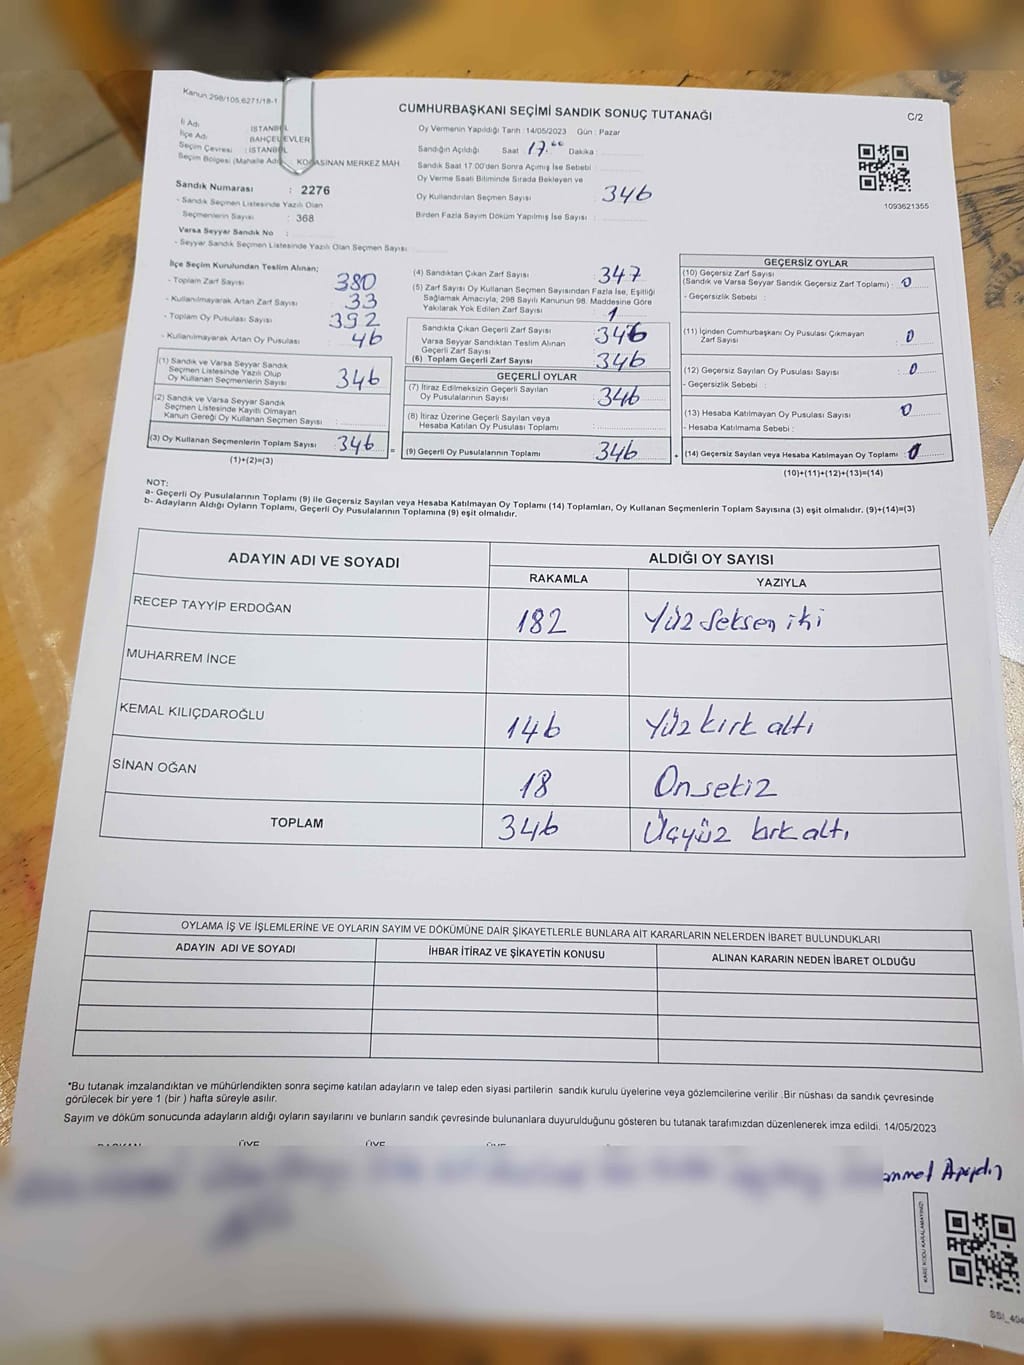 Kanun:298/105,6271/18-1
CUMHURBAŞKANI SEÇİMİ SANDIK SONUÇ TUTANAĞI
C/2
İl Adı : İSTANBUL
İlçe Adı : BAHÇELİEVLER
Seçim Çevresi : İSTANBUL
Seçim Bölgesi (Mahalle Adı) KOCASİNAN MERKEZ MAH.
Sandık Numarası : 2276
- Sandık Seçmen Listesinde Yazılı Olan
Seçmenlerin Sayısı : 368
Varsa Seyyar Sandık No :
- Seyyar Sandık Seçmen Listesinde Yazılı Olan Seçmen Sayısı
Oy Vermenin Yapıldığı Tarih :14/05/2023 Gün : Pazar
Sandığın Açıldığı Saat : 17.00 Dakika :
Sandık Saat 17:00'den Sonra Açılmış İse Sebebi :
Oy Verme Saati Bitiminde Sırada Bekleyen ve
Oy Kullandırılan Seçmen Sayısı : 346
Birden Fazla Sayım Döküm Yapılmış İse Sayısı :
1093621355
İlçe Seçim Kurulundan Teslim Alınan;
- Toplam Zarf Sayısı 380
- Kullanılmayarak Artan Zarf Sayısı 33
- Toplam Oy Pusulası Sayısı 392
- Kullanılmayarak Artan Oy Pusulası 46
(1) Sandık ve Varsa Seyyar Sandık
Seçmen Listesinde Yazılı Olup
Oy Kullanan Seçmenlerin Sayısı 346
(2) Sandık ve Varsa Seyyar Sandık
Seçmen Listesinde Kayıtlı Olmayan
Kanun Gereği Oy Kullanan Seçmen Sayısı :
(3) Oy Kullanan Seçmenlerin Toplam Sayısı 346 =
(1)+(2)=(3)
(4) Sandıktan Çıkan Zarf Sayısı : 347
(5) Zarf Sayısı Oy Kullanan Seçmen Sayısından Fazla İse, Eşitliği
Sağlamak Amacıyla, 298 Sayılı Kanunun 98. Maddesine Göre
Yakılarak Yok Edilen Zarf Sayısı : 1
Sandıkta Çıkan Geçerli Zarf Sayısı 346
Varsa Seyyar Sandıktan Teslim Alınan
Geçerli Zarf Sayısı
(6) Toplam Geçerli Zarf Sayısı : 346
GEÇERLİ OYLAR
(7) İtiraz Edilmeksizin Geçerli Sayılan
Oy Pusulalarının Sayısı : 346
(8) İtiraz Üzerine Geçerli Sayılan veya
Hesaba Katılan Oy Pusulası Toplamı :
(9) Geçerli Oy Pusulalarının Toplamı 346 +
GEÇERSİZ OYLAR
(10) Geçersiz Zarf Sayısı
(Sandık ve Varsa Seyyar Sandık Geçersiz Zarf Toplamı) : 0
- Geçersizlik Sebebi :
(11) İçinden Cumhurbaşkanı Oy Pusulası Çıkmayan
Zarf Sayısı 0
(12) Geçersiz Sayılan Oy Pusulası Sayısı : 0
- Geçersizlik Sebebi :
(13) Hesaba Katılmayan Oy Pusulası Sayısı : 0
- Hesaba Katılmama Sebebi :
(14) Geçersiz Sayılan veya Hesaba Katılmayan Oy Toplamı : 0
(10)+(11)+(12)+(13)=(14)
NOT:
a- Geçerli Oy Pusulalarının Toplamı (9) ile Geçersiz Sayılan veya Hesaba Katılmayan Oy Toplamı (14) Toplamları, Oy Kullanan Seçmenlerin Toplam Sayısına (3) eşit olmalıdır. (9)+(14)=(3)
b- Adayların Aldığı Oyların Toplamı, Geçerli Oy Pusulalarının Toplamına (9) eşit olmalıdır.
ADAYIN ADI VE SOYADI ALDIĞI OY SAYISI
RAKAMLA YAZIYLA
RECEP TAYYİP ERDOĞAN 182 Yüz seksen iki
MUHARREM İNCE
KEMAL KILIÇDAROĞLU 146 Yüz kırk altı
SİNAN OĞAN 18 Onsekiz
TOPLAM 346 Üçyüz kırk altı
OYLAMA İŞ VE İŞLEMLERİNE VE OYLARIN SAYIM VE DÖKÜMÜNE DAİR ŞİKAYETLERLE BUNLARA AİT KARARLARIN NELERDEN İBARET BULUNDUKLARI
ADAYIN ADI VE SOYADI İHBAR İTİRAZ VE ŞİKAYETİN KONUSU ALINAN KARARIN NEDEN İBARET OLDUĞU
*Bu tutanak imzalandıktan ve mühürlendikten sonra seçime katılan adayların ve talep eden siyasi partilerin sandık kurulu üyelerine veya gözlemcilerine verilir .Bir nüshası da sandık çevresinde
görülecek bir yere 1 (bir ) hafta süreyle asılır.
Sayım ve döküm sonucunda adayların aldığı oyların sayılarını ve bunların sandık çevresinde bulunanlara duyurulduğunu gösteren bu tutanak tarafımızdan düzenlenerek imza edildi. 14/05/2023
BAŞKAN ÜYE ÜYE ÜYE
KARE KODU KARALAMAYINIZ!